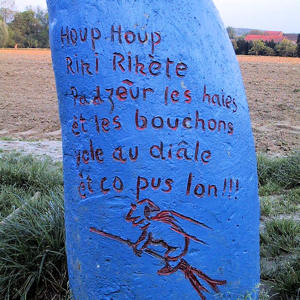 Houp Houp
Riki Rikète
Padzeûr les haies
et les bouchons
vole au diâle
èt co pus lon!!!